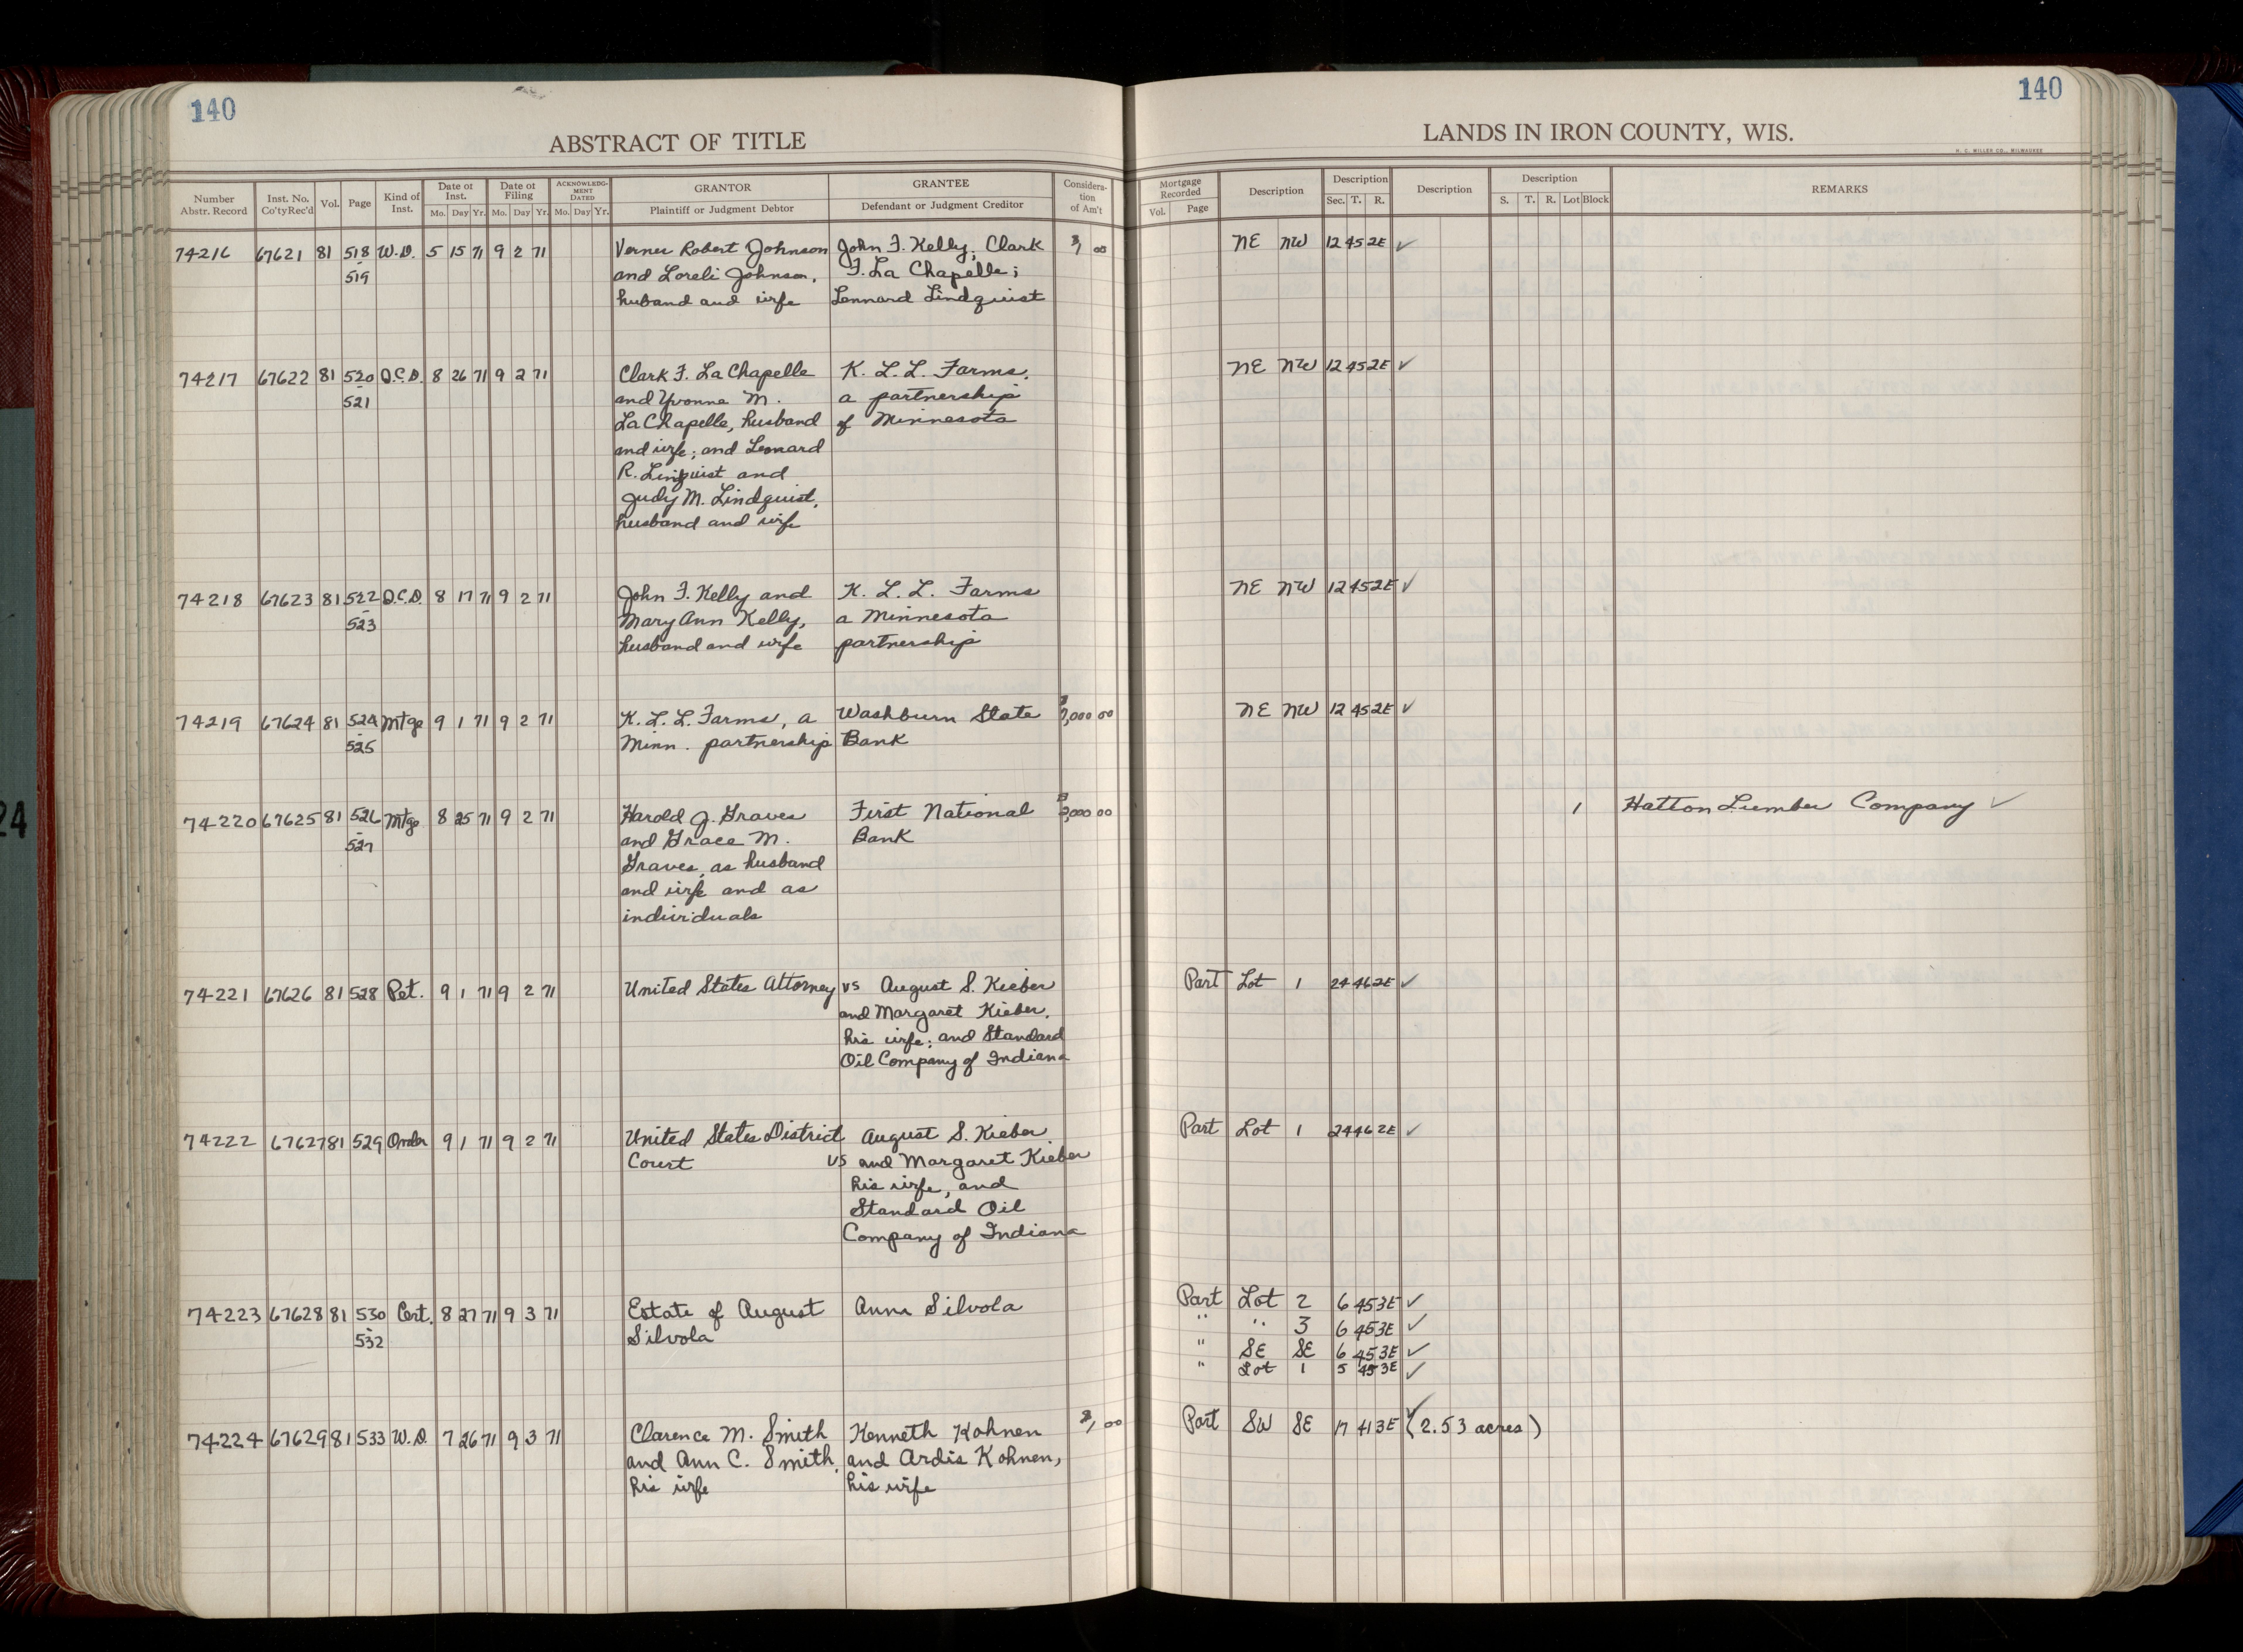 140
140
ABSTRACT OF TITLE
LANDS IN IRON COUNTY, WIS.
H. C. MILLER CO., MILWAUKEE
Number Abstr. Record
Inst. No. Co'ty Rec'd
Vol.
Page
Kind of Inst.
Date of Inst. Mo. Day Yr.
Date of Filing Mo. Day Yr.
ACKNOWLEDGMENT DATED Mo. Day Yr.
GRANTOR Plaintiff or Judgment Debtor
GRANTEE Defendant or Judgment Creditor
Consideration of Am't
Mortgage Recorded Vol. Page
Description
Description Sec. T. R.
Description
Description S. T. R. Lot Block
REMARKS
74216 67621 81 518 W.D. 5 15 71 9 2 71 Verner Robert Johnson John F. Kelly; Clark $1 00 NE NW 12 45 2E ✓
- 519 and Loreli Johnson, F. La Chapelle;
huband and wife Lennard Lindquist
74217 67622 81 520 Q.C.D. 8 26 71 9 2 71 Clark F. La Chapelle K. L. L. Farms, NE NW 12 45 2E ✓
- 521 and Yvonne M. a partnership
La Chapelle, husband of Minnesota
and wife; and Lennard
R. Linquist and
Judy M. Lindquist,
husband and wife
74218 67623 81 522 Q.C.D. 8 17 71 9 2 71 John F. Kelly and K. L. L. Farms NE NW 12 45 2E ✓
- 523 Mary Ann Kelly, a Minnesota
husband and wife partnership
74219 67624 81 524 Mtge 9 1 71 9 2 71 K. L. L. Farms, a Washburn State $7,000 00 NE NW 12 45 2E ✓
- 525 Minn. partnership Bank
74220 67625 81 526 Mtge 8 25 71 9 2 71 Harold J. Graves First National 00 1 Hatton Lumber Company ✓
- 527 and Grace M. Bank
Graves, as husband
and wife and as
individuals
74221 67626 81 528 Pet. 9 1 71 9 2 71 United States Attorney vs August S. Kieber Part Lot 1 24 46 2E ✓
and Margaret Kieber,
his wife; and Standard
Oil Company of Indiana
74222 67627 81 529 Order 9 1 71 9 2 71 United States District August S. Kieber Part Lot 1 24 46 2E ✓
Court vs and Margaret Kieber
his wife, and
Standard Oil
Company of Indiana
74223 67628 81 530 Cert. 8 27 71 9 3 71 Estate of August Anna Silvola Part Lot 2 6 45 3E ✓
- 532 Silvola " " 3 6 45 3E ✓
" SE SE 6 45 3E ✓
" Lot 1 5 45 3E ✓
74224 67629 81 533 W.D. 7 26 71 9 3 71 Clarence M. Smith Kenneth Kohnen $1 00 Part SW SE 17 41 3E ✓ (2.53 acres)
and Ann C. Smith, and Ardis Kohnen,
his wife his wife
24